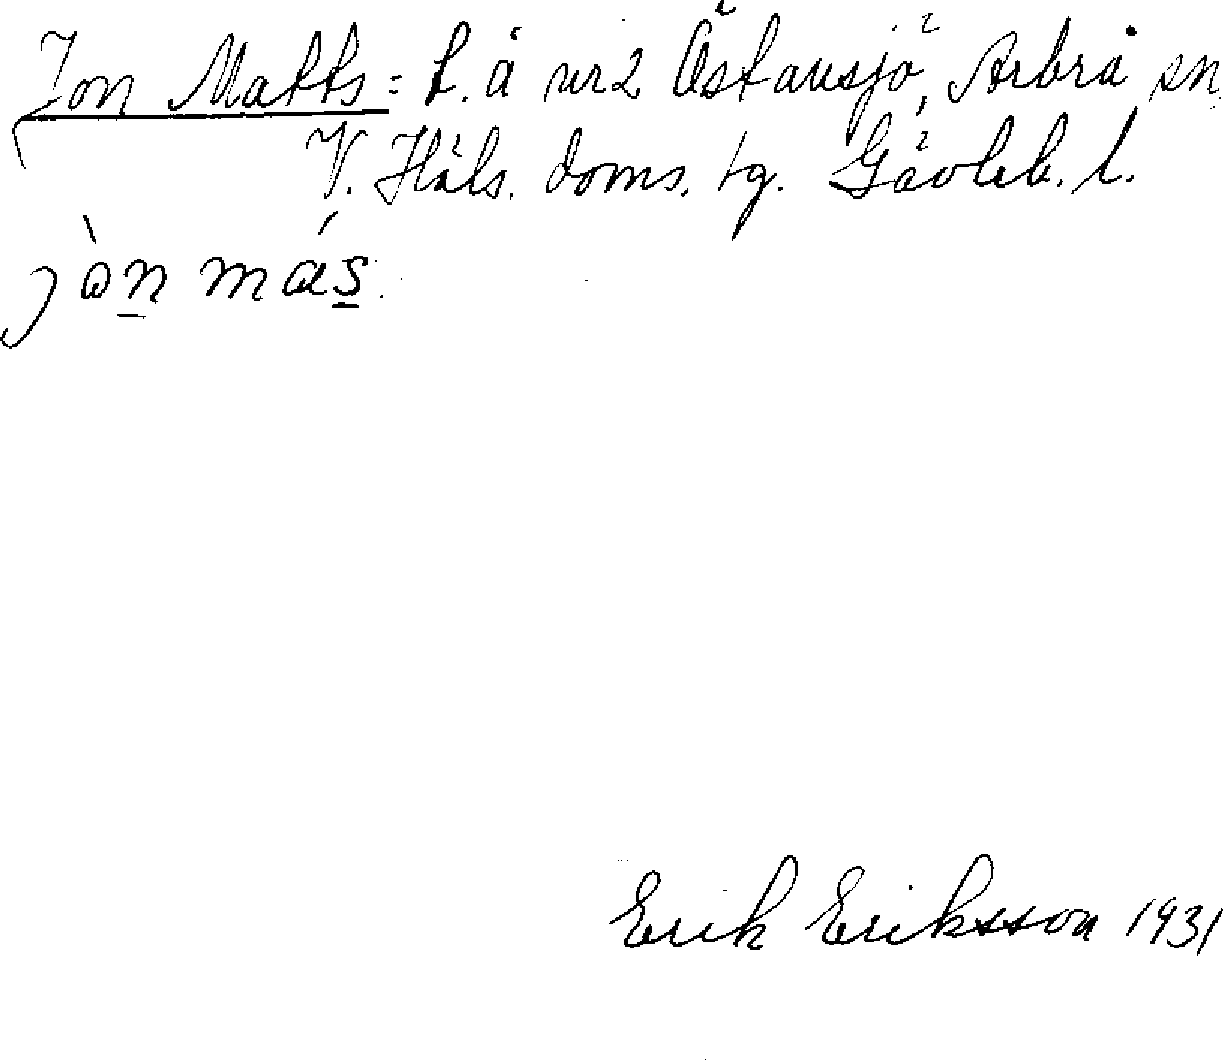 Jon Matts = t. å nr 2 Östansjö, Arbrå sn.
V. Häls. doms. tg. Gävleb. l.
jòn más.
Erik Eriksson 1931